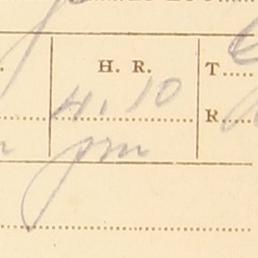 H. R. T.....
4.10 R.....
pm